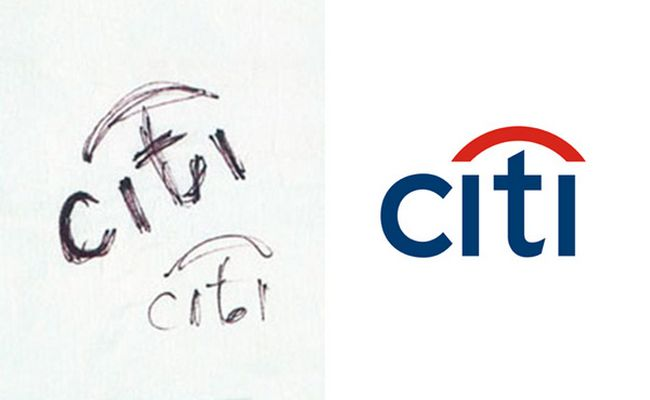 citi
citi
citi